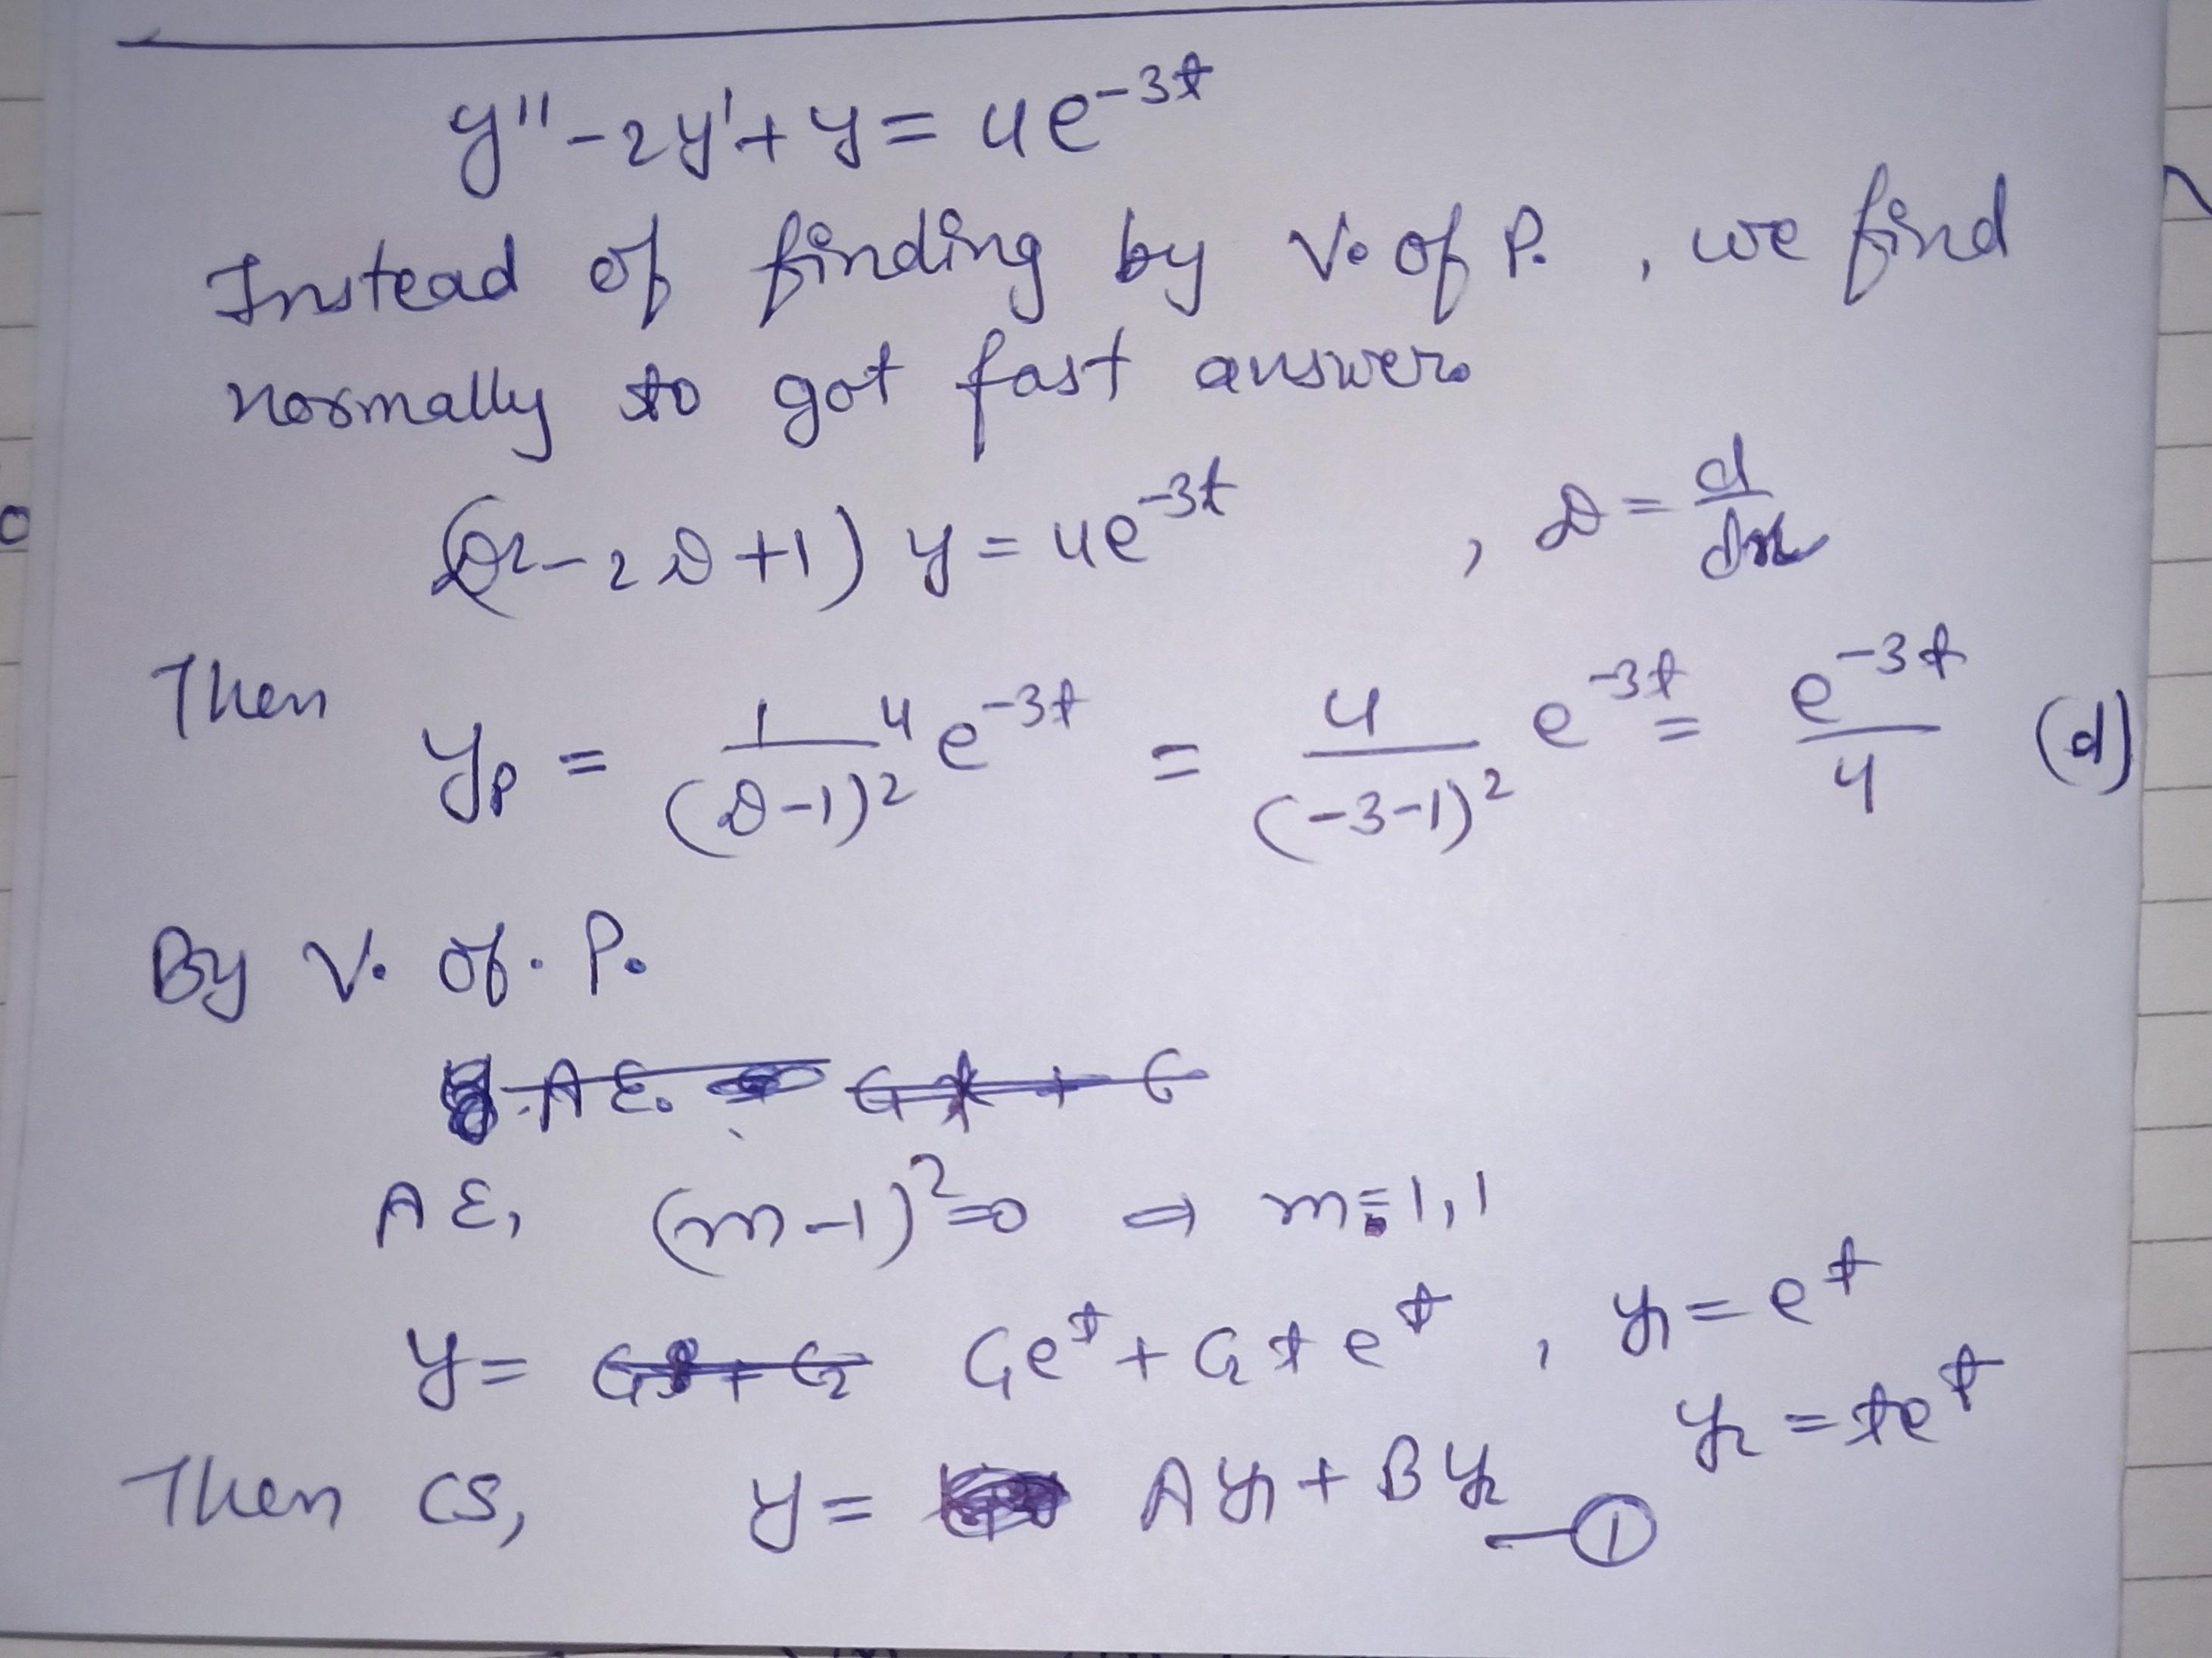 y'' - 2y' + y = 4e^{-3t}
Instead of finding by V. of P. , we find
normally to got fast answer.
(D² - 2D + 1) y = 4e^{-3t} , D = d/dx
Then y_p = 1/(D-1)² 4e^{-3t} = 4/(-3-1)² e^{-3t} = e^{-3t}/4 (d)
By V. of. P.
A.E.
AE, (m-1)² = 0 ⇒ m = 1, 1
y = C₁e^t + C₂te^t , y₁ = e^t
y₂ = te^t
Then CS, y = Ay₁ + By₂ — ①